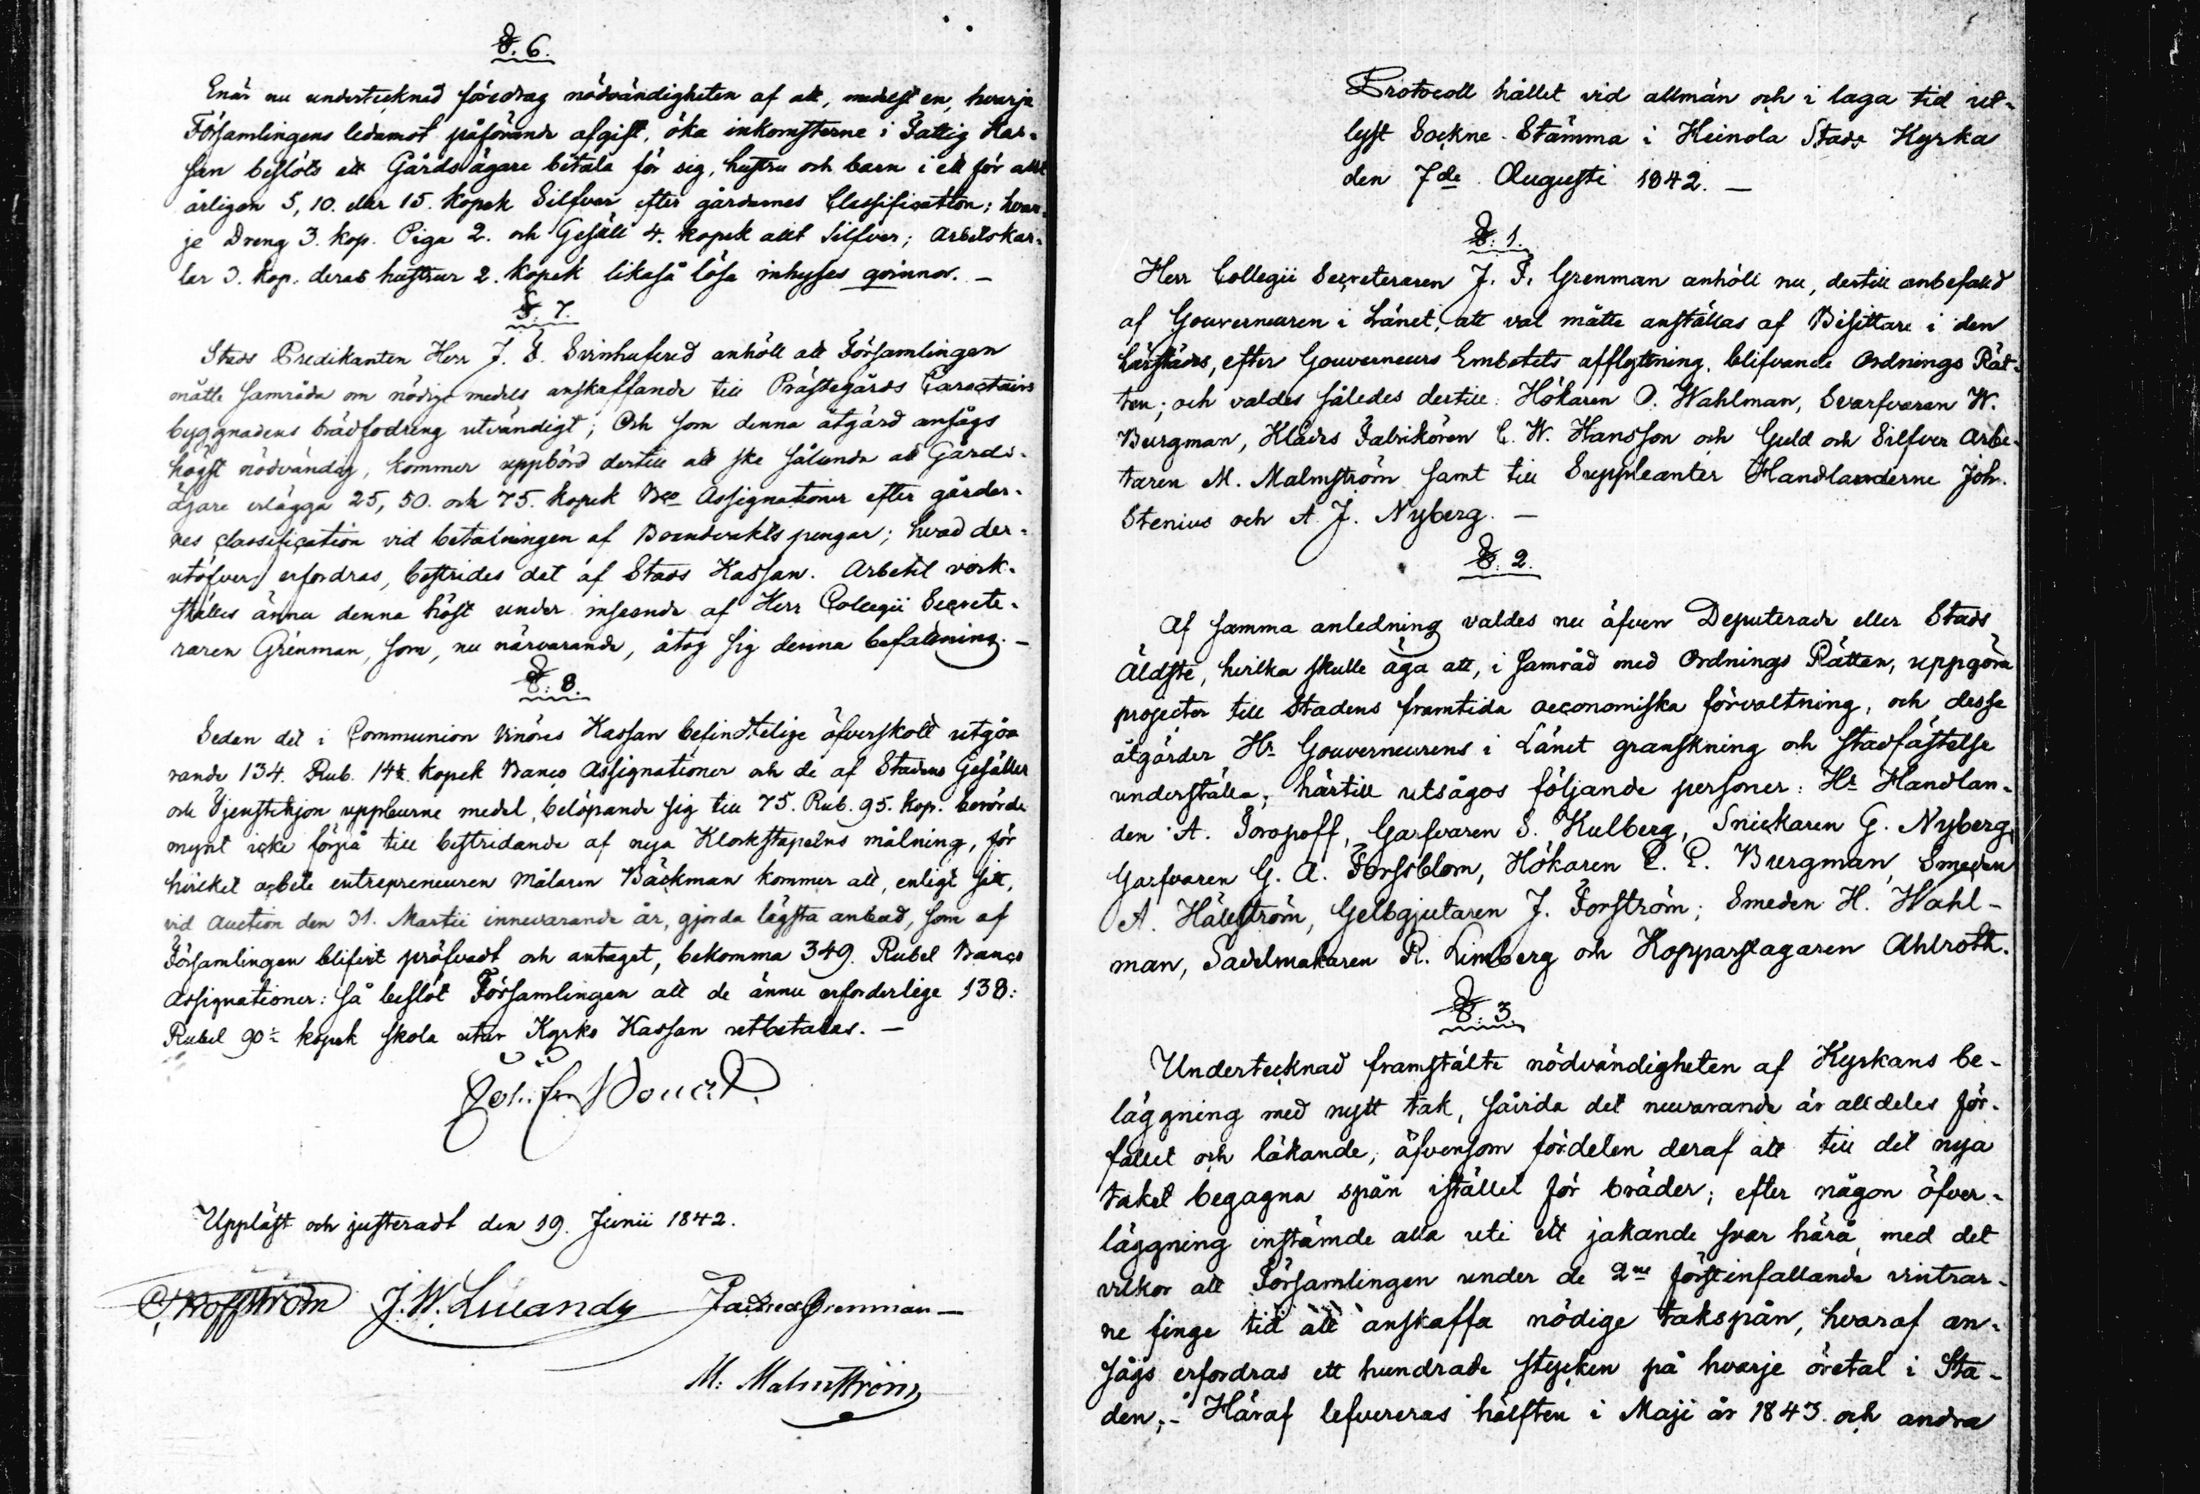 §. 6.
Enär nu undertecknad föredrag nödvändigheten af att, medelst en, hvarje
Församlingens ledamot påförande afgift, öka inkomsterne i Fattig Kas-
san beslöts att Gårdsägare betala för sig, hustru och barn i ett för allt
årligen 5, 10. eller 15. kopek Silfver efter gårdarnes Classification; hvar-
je Dreng 3. kop. Piga 2. och Gesäll 4. kopek allt Silfver; Arbetskar-
lar 3. kop. deras hustrur 2. kopek likaså lösa inhyses qvinnor. –
§. 7.
Stads Predikanten Herr J. F. Svinhufvud anhöll att Församlingen
måtte samråda om nödige medels anskaffande till Prästegårds
byggnadens brädfodring utvändigt; Och som denna åtgärd ansågs
högst nödvändig, kommer uppbörd dertill att ske sålunda att Gårds-
ägare erlägga 25, 50. och 75. kopek Bco Assignationer efter gårdar-
nes classification vid betalningen af Brandvakts pengar; hvad der-
utöfver erfordras, bestrides det af Stads Kassan. Arbetet verk-
ställes ännu denna höst under inseende af Herr Collegii Secrete-
raren Grenman, som, nu närvarande, åtog sig denna befattning. –
§. 8.
Sedan det i Communion Vinöres Kassan befindtelige öfverskott utgör
rande 134. Rub. 14½ kopek Banco Assignationer och de af Stadens Gesäller
och Djenstehjon uppburne medel, belöpande sig till 75. Rub. 95. kop. berörde
mynt icke förslå till bestridande af nya Klockstapelns målning, för
hvilket arbete entrepreneuren Målaren Bäckman kommer att, enligt sitt,
vid Auction den 31. Martii innevarande år, gjorda lägsta anbud, som af
Församlingen blifvit pröfvadt och antaget, bekomma 349. Rubel Banco
Assignationer: så beslöt Församlingen att de ännu erforderlige 138:
Rubel 90½ kopek skola utur Kyrko Kassan utbetalas. –
Uppläst och justeradt den 19. Junii 1842.
C. Hoffström J. W. Lucander Grenman –
M. Malmström
Protocoll hållet vid allmän och i laga tid ut-
lyst Sockne-Stämma i Heinola Stads Kyrka
den 7de Augusti 1842. –
§. 1.
Herr Collegii Secreteraren J. F. Grenman anhöll nu, dertill anbefalld
af Gouverneuren i Länet, att val måtte anställas af Bisittare i den
härstädes, efter Gouverneurs Embetets afflyttning, blifvande Ordnings Rät-
ten; och valdes således dertill: Hökaren O. Wahlman, Svarfvaren W.
Burgman, Klädes Fabrikören C. W. Hansson och Guld och Silfver Arbe-
taren M. Malmström samt till Suppleanter Handlanderne Joh.
Stenius och A. J. Nyberg. –
§. 2.
Af samma anledning valdes nu äfven Deputerade eller Stads
Äldste, hvilka skulle äga att, i samråd med Ordnings Rätten, uppgöra
projecter till Stadens framtida oeconomiska förvaltning, och desse
åtgärder Hr Gouverneurens i Länet granskning och stadfästelse
underställa; härtill utsågos följande personer: Hr Handlan-
den A. Soropoff, Garfvaren S. Kulberg, Snickaren G. Nyberg,
Garfvaren G. A. Forssblom, Hökaren C. P. Burgman, Smeden
A. Hällström, Gelbgjutaren J. Forström; Smeden H. Wahl-
man, Sadelmakaren R. Limberg och Kopparslagaren Ahlroth.
§. 3.
Undertecknad framstälte nödvändigheten af Kyrkans be-
läggning med nytt tak, såvida det nuvarande är alldeles för-
fallet och läkande, äfvensom fördelen deraf att till det nya
taket begagna spån istället för bräder; efter någon öfver-
läggning instämde alla uti ett jakande svar härå, med det
vilkor att Församlingen under de 2ne förstinfallande vintrar-
ne finge tid att anskaffa nödige takspån, hvaraf an-
sågs erfordras ett hundrade stycken på hvarje öretal i Sta-
den; – Häraf lefvereras hälften i Maji år 1843. och andra